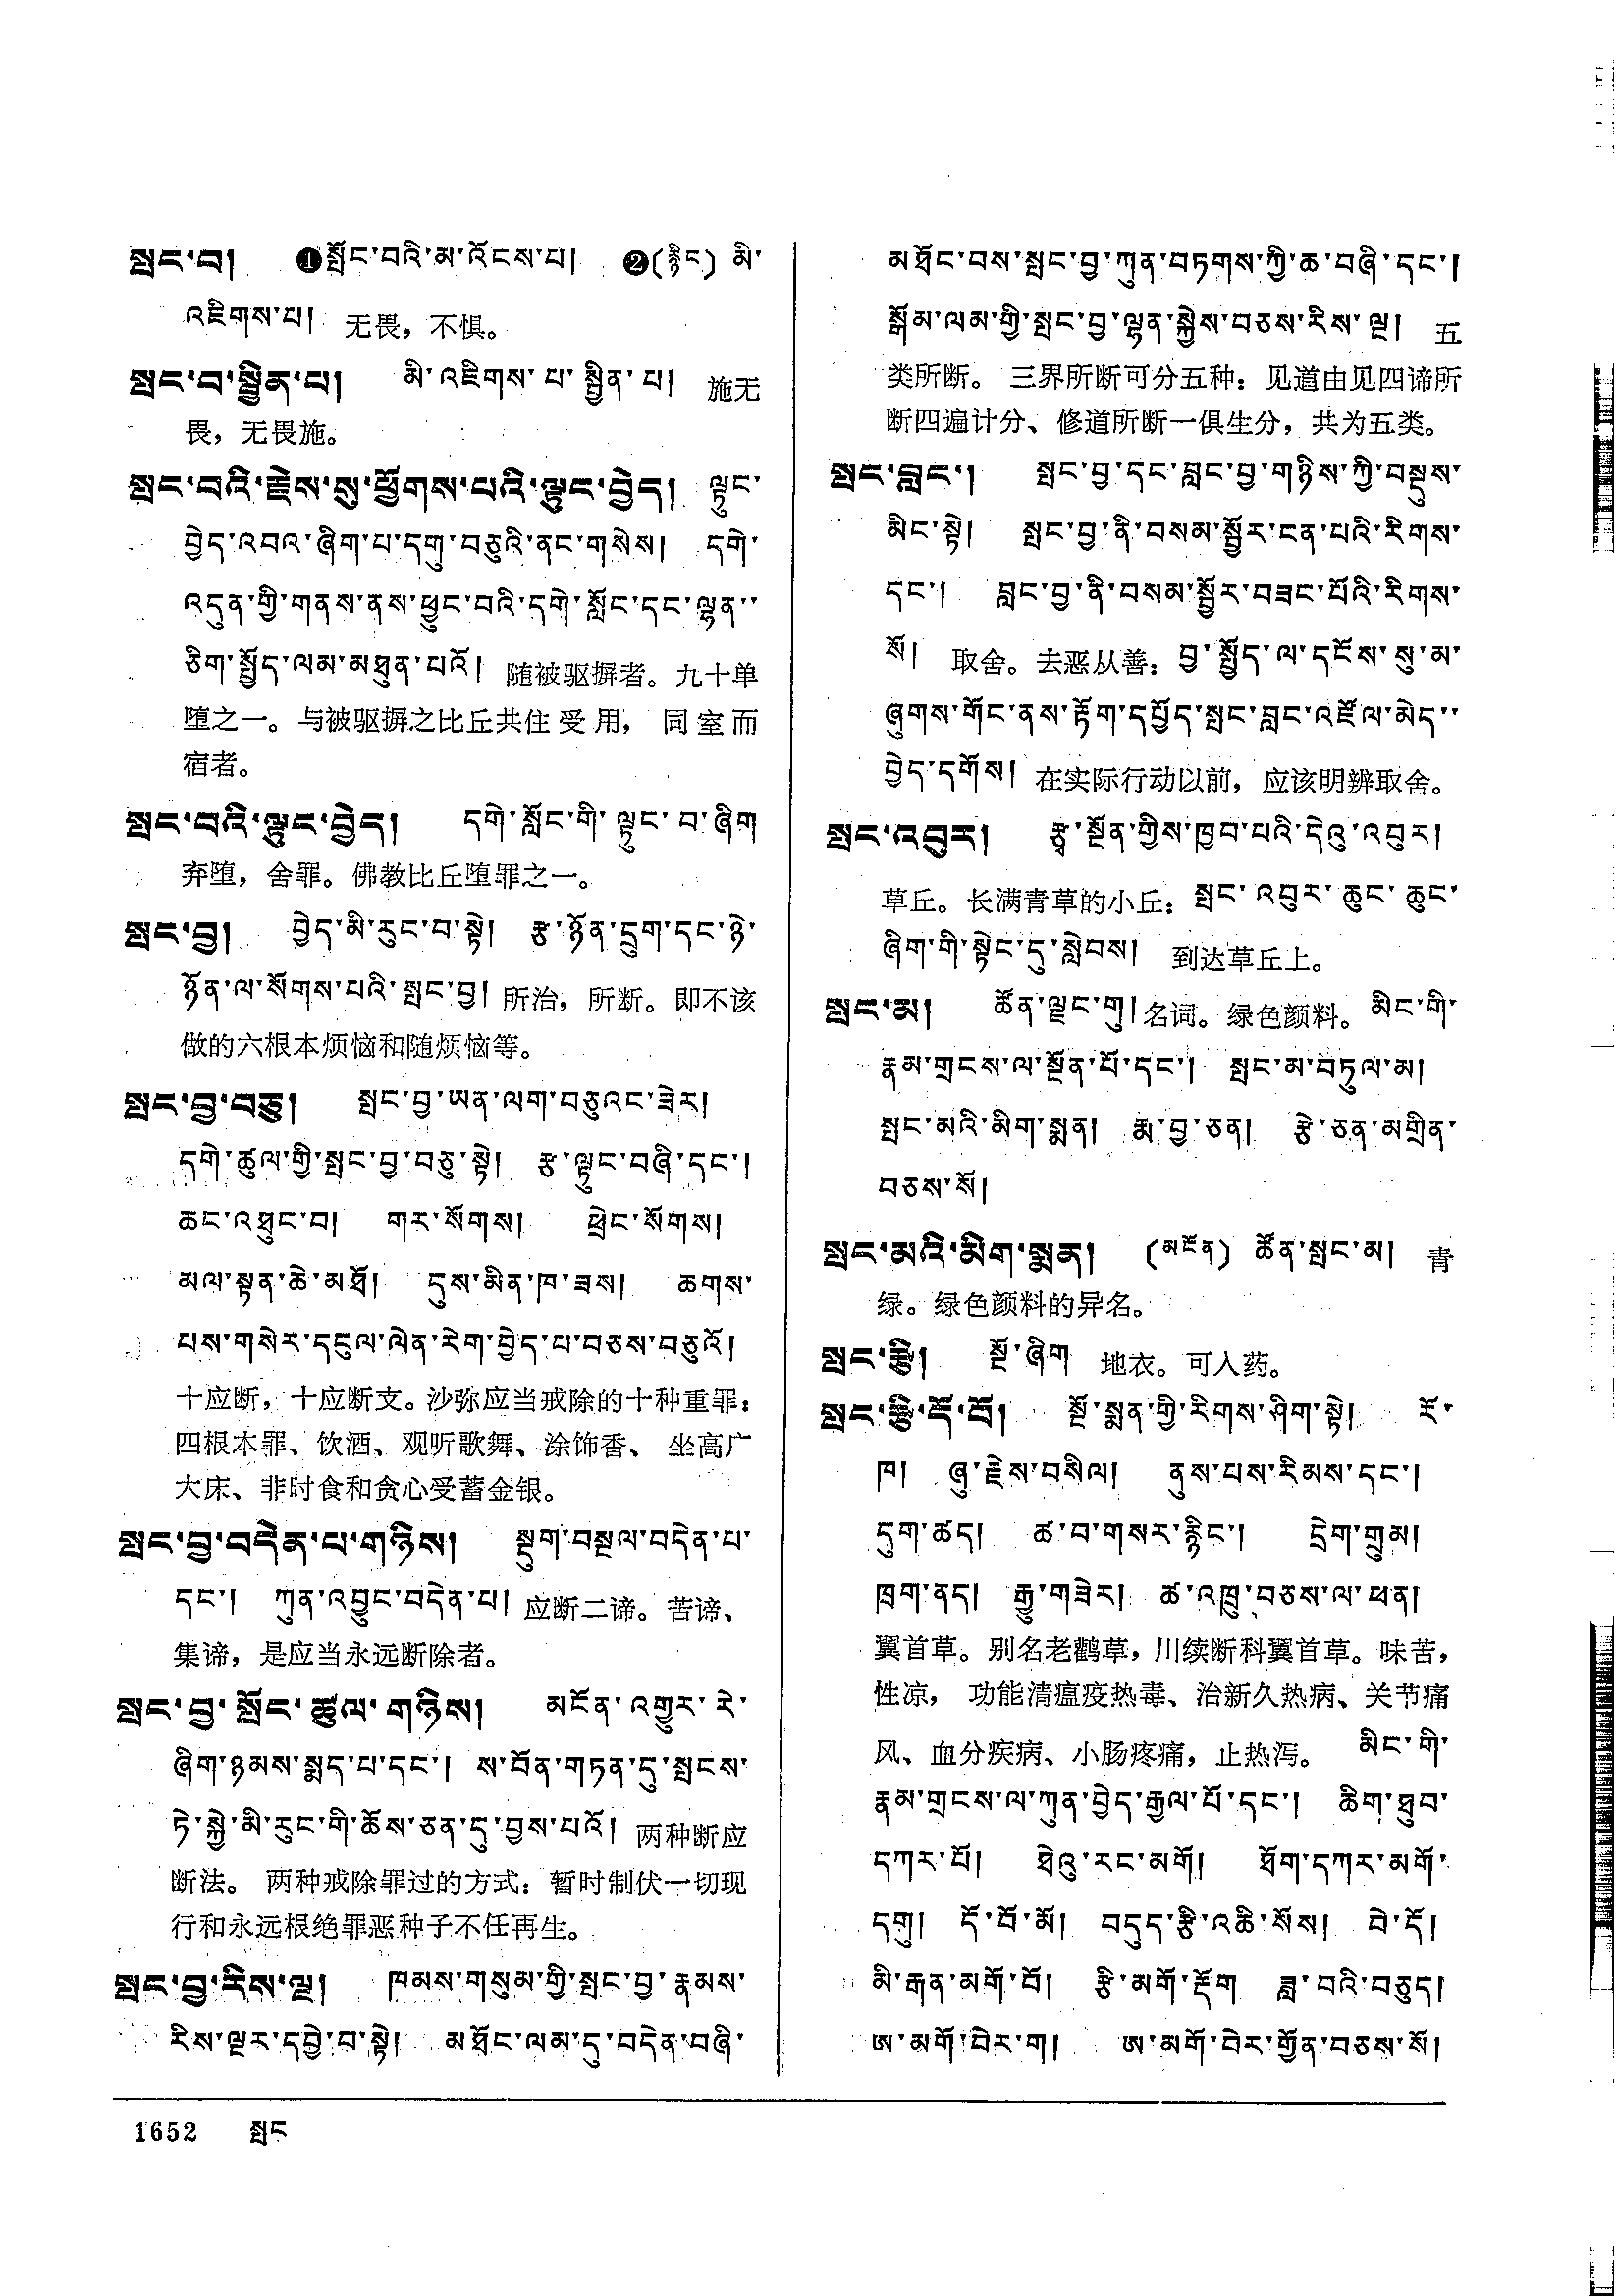 སྤང་བ། ❶སྤོང་བའི་མ་འོངས་པ། ❷(རྙིང) མི་
འཇིགས་པ། 无畏，不惧。
སྤང་བ་སྦྱིན་པ། མི་འཇིགས་པ་སྦྱིན་པ། 施无
畏，无畏施。
སྤང་བའི་རྗེས་སུ་ཕྱོགས་པའི་ལྟུང་བྱེད། ལྟུང་
བྱེད་འབའ་ཞིག་པ་དགུ་བཅུའི་ནང་གསེས། དགེ་
འདུན་གྱི་གནས་ནས་ཕྱུང་བའི་དགེ་སློང་དང་ལྷན་་
ཅིག་སྤྱོད་ལམ་མཐུན་པའོ། 随被驱摒者。九十单
堕之一。与被驱摒之比丘共住受用，同室而
宿者。
སྤང་བའི་ལྟུང་བྱེད། དགེ་སློང་གི་ལྟུང་བ་ཞིག
弃堕，舍罪。佛教比丘堕罪之一。
སྤང་བྱ། བྱེད་མི་རུང་བ་སྟེ། རྩ་ཉོན་དྲུག་དང་ཉེ་
ཉོན་ལ་སོགས་པའི་སྤང་བྱ། 所治，所断。即不该
做的六根本烦恼和随烦恼等。
སྤང་བྱ་བཅུ། སྤང་བྱ་ཡན་ལག་བཅུའང་ཟེར།
དགེ་ཚུལ་གྱི་སྤང་བྱ་བཅུ་སྟེ། རྩ་ལྟུང་བཞི་དང་།
ཆང་འཐུང་བ། གར་སོགས། ཕྲེང་སོགས།
མལ་སྟན་ཆེ་མཐོ། དུས་མིན་ཁ་ཟས། ཆགས་
པས་གསེར་དངུལ་ལེན་རེག་བྱེད་པ་བཅས་བཅུའོ།
十应断，十应断支。沙弥应当戒除的十种重罪：
四根本罪、饮酒、观听歌舞、涂饰香、坐高广
大床、非时食和贪心受蓄金银。
སྤང་བྱ་བདེན་པ་གཉིས། སྡུག་བསྔལ་བདེན་པ་
དང་། ཀུན་འབྱུང་བདེན་པ། 应断二谛。苦谛、
集谛，是应当永远断除者。
སྤང་བྱ་སྤོང་ཚུལ་གཉིས། མངོན་འགྱུར་རེ་
ཞིག་ཉམས་སྨད་པ་དང་། ས་བོན་གཏན་དུ་སྤངས་
ཏེ་སྐྱེ་མི་རུང་གི་ཆོས་ཅན་དུ་བྱས་པའོ། 两种断应
断法。两种戒除罪过的方式：暂时制伏一切现
行和永远根绝罪恶种子不任再生。
སྤང་བྱ་རིས་ལྔ། ཁམས་གསུམ་གྱི་སྤང་བྱ་རྣམས་
རིས་ལྔར་དབྱེ་བ་སྟེ། མཐོང་ལམ་དུ་བདེན་བཞི་
མཐོང་བས་སྤང་བྱ་ཀུན་བཏགས་ཀྱི་ཆ་བཞི་དང་།
སྒོམ་ལམ་གྱི་སྤང་བྱ་ལྷན་སྐྱེས་བཅས་རིས་ལྔ། 五
类所断。三界所断可分五种：见道由见四谛所
断四遍计分、修道所断一俱生分，共为五类。
སྤང་བླང་། སྤང་བྱ་དང་བླང་བྱ་གཉིས་ཀྱི་བསྡུས་
མིང་སྟེ། སྤང་བྱ་ནི་བསམ་སྦྱོར་ངན་པའི་རིགས་
དང་། བླང་བྱ་ནི་བསམ་སྦྱོར་བཟང་པོའི་རིགས་
སོ། 取舍。去恶从善：བྱ་སྤྱོད་ལ་དངོས་སུ་མ་
ཞུགས་གོང་ནས་རྟོག་དཔྱོད་སྤང་བླང་འཛོལ་མེད་་
བྱེད་དགོས། 在实际行动以前，应该明辨取舍。
སྤང་འབུར། རྩྭ་སྔོན་གྱིས་ཁྱབ་པའི་དེའུ་འབུར།
草丘。长满青草的小丘：སྤང་འབུར་ཆུང་ཆུང་
ཞིག་གི་སྟེང་དུ་སླེབས། 到达草丘上。
སྤང་མ། ཚོན་ལྗང་གུ། 名词。绿色颜料。མིང་གི་
རྣམ་གྲངས་ལ་སྔོན་པོ་དང་། སྤང་མ་བཏུལ་མ།
སྤང་མའི་མིག་སྨན། རྨ་བྱ་ཅན། རྩེ་ཅན་མགྲིན་
བཅས་སོ།
སྤང་མའི་མིག་སྨན། (མངོན) ཚོན་སྤང་མ། 青
绿。绿色颜料的异名。
སྤང་རྩི། སྔོ་ཞིག 地衣。可入药。
སྤང་རྩི་དོ་བོ། སྔོ་སྨན་གྱི་རིགས་ཤིག་སྟེ། རོ་
ཁ། ཞུ་རྗེས་བསིལ། ནུས་པས་རིམས་དང་།
དུག་ཚད། ཚ་བ་གསར་རྙིང་། དྲེག་གྲུམ།
ཁྲག་ནད། རྒྱུ་གཟེར། ཚ་འཁྲུ་བཅས་ལ་ཕན།
翼首草。别名老鹳草，川续断科翼首草。味苦，
性凉，功能清瘟疫热毒、治新久热病、关节痛
风、血分疾病、小肠疼痛，止热泻。མིང་གི་
རྣམ་གྲངས་ལ་ཀུན་བྱེད་རྒྱལ་པོ་དང་། ཆིག་ཐུབ་
དཀར་པོ། ཐེའུ་རང་མགོ། ཐོག་དཀར་མགོ་
དགུ། དོ་བོ་མོ། བདུད་རྩི་འཆི་སོས། བེ་དོ།
མི་རྒན་མགོ་བོ། རྩི་མགོ་རྡོག ཟླ་བའི་བཅུད།
ཨ་མགོ་བེར་ག། ཨ་མགོ་བེར་གྱོན་བཅས་སོ།
1652 སྤང